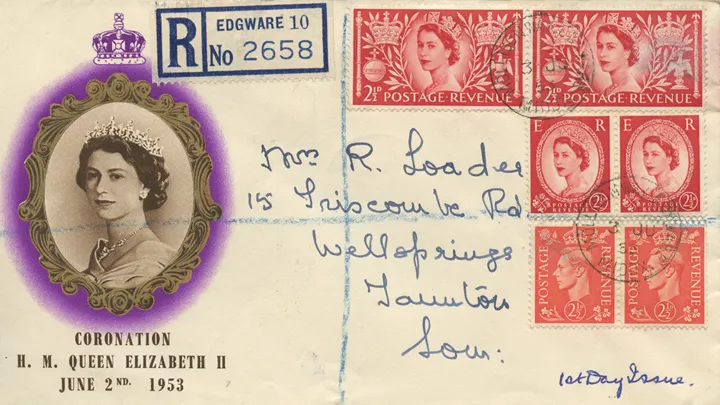 EDGWARE 10
R No 2658
2½D POSTAGE · REVENUE
2½D POSTAGE · REVENUE
E R
E R
POSTAGE REVENUE 2½D
POSTAGE REVENUE 2½D
POSTAGE 2½D REVENUE
POSTAGE 2½D REVENUE
3 JU
3 JU
R. Loader
15 Triscombe Rd
Wellsprings
Taunton
Som:
1st Day Issue.
CORONATION
H. M. QUEEN ELIZABETH II
JUNE 2ND. 1953